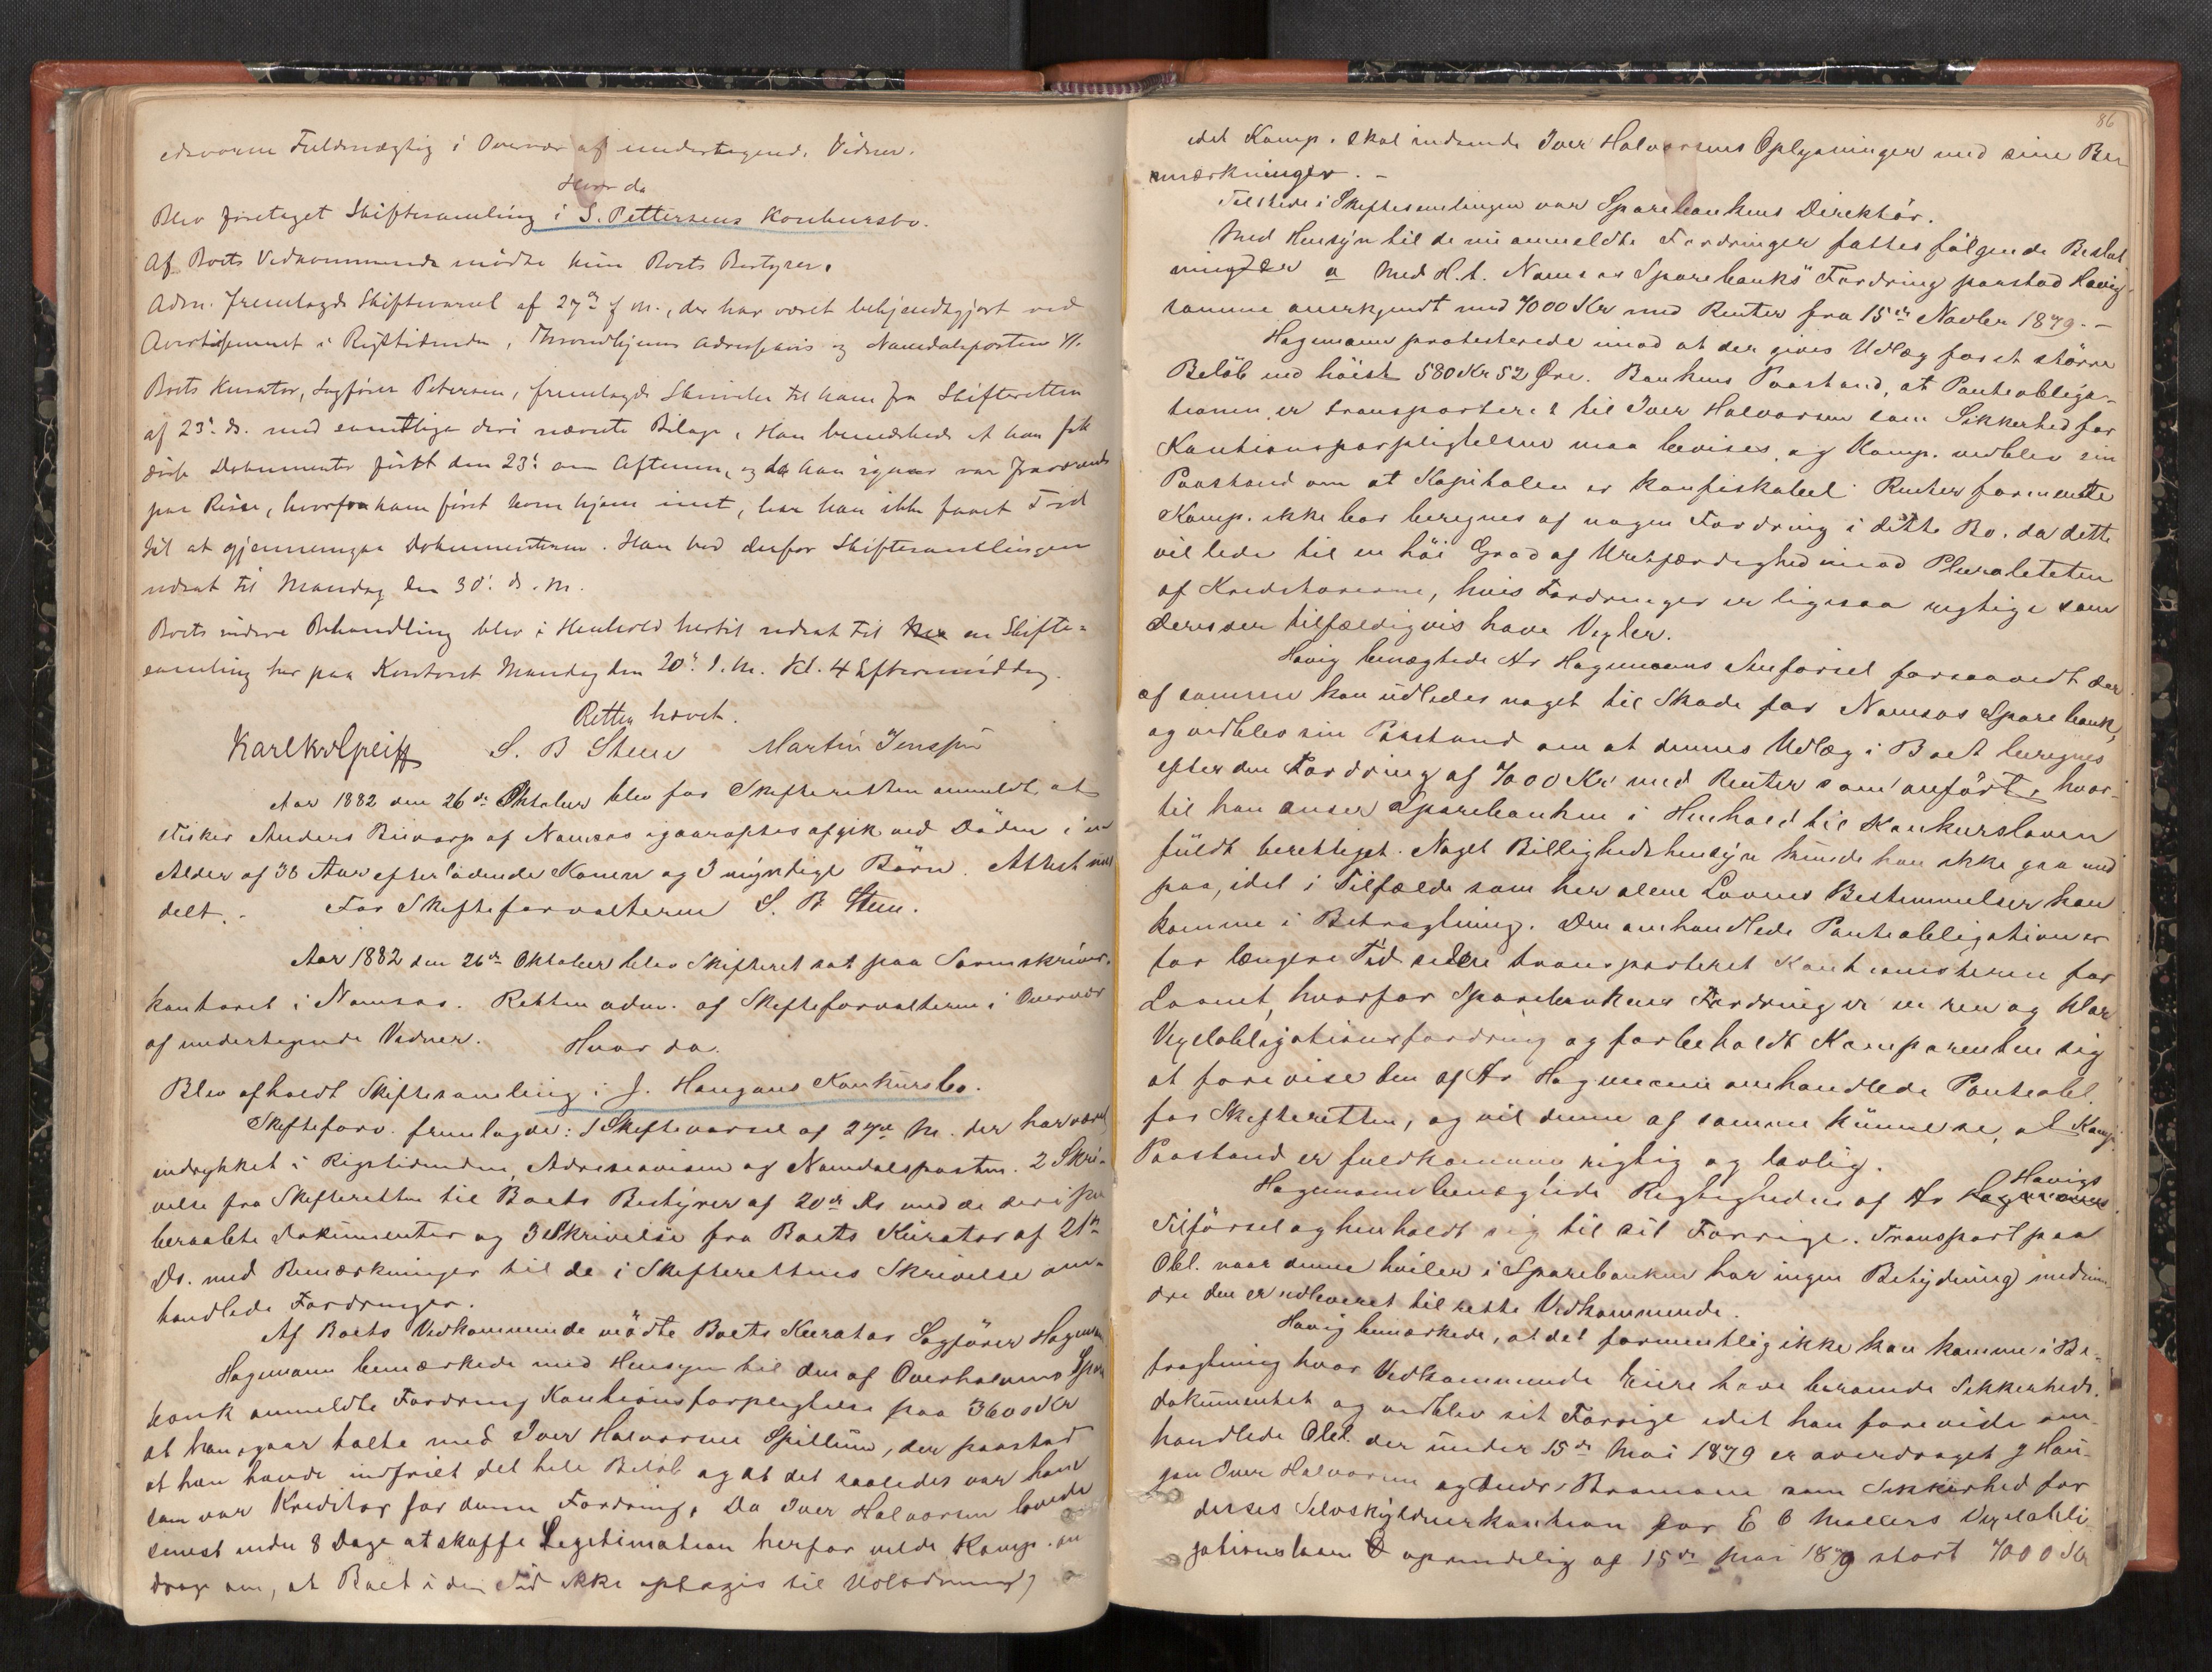 edsvoren Fuldmægtig i Overvær af undertegnede Vidner.
Hvor da
Blev foretaget Skiftesamling i S. Pettersens Konkursbo.
Af Boets Vedkommende mødte kun Boets Bestyrer.
Adm. fremlagde Skiftevarsel af 27de f. M., der har været bekjendtgjort ved
Avertissement i Rigstidende, Throndhjems Adresseavis og Namdalsposten
Boets Kurator, Sagfører Petersen, fremlagde Skrivelse til ham fra Skifteretten
af 23. ds. med samtlige deri nævnte Bilage. Han bemærkede at han fik
disse Dokumenter først den 23. om Aftenen, og da han igaar var fraværende
paa Reise, hvorfra han først kom hjem inat, har han ikke faaet Tid
til at gjennemgaa Dokumenterne. Han bad derfor Skiftesamlingen
udsat til Mandag den 30. ds. M.
Boets videre Behandling blev i Henhold hertil udsat til en Skifte-
samling her paa Kontoret Mandag den 30. d. M. Kl. 4 Eftermiddag.
Retten hævet.
S. B Steen Martin Jenssen
Aar 1882 den 26de Oktober blev for Skifteretten anmeldt, at
Fisker Anders af Namsos igaaraftes afgik ved Døden i en
Alder af 38 Aar efterladende Konen og 3 myndige Børn. Attest med
delt. - For Skifteforvalteren S. B Steen.
Aar 1882 den 26de Oktober blev Skifteret sat paa Sorenskriver-
kontoret i Namsos. Retten adm. af Skifteforvalteren i Overvær
af undertegnede Vidner. Hvor da.
Blev afholdt Skiftesamling i J. Haugans Konkursbo.
Skifteforv. fremlagde: 1 Skiftevarsel af 27de M. der har været
indrykket i Rigstidenden, Adresseavisen og Namdalsposten. 2 Skri-
velse fra Skifteretten til Boets Bestyrer af 20de Ds med de deri pa
beraabte Dokumenter og 3 Skrivelse fra Boets Kurator af 21de
Ds. med Bemærkninger til de i Skifterettens Skrivelse om-
handlede Fordringer.
Af Boets Vedkommende mødte Boets Kurator Sagfører Hagemann
Hagemann bemærkede med Hensyn til den af Overhalvens Spare
bank anmeldte Fordring Kautionsforpligtelse paa 3600 Kr
at han igaar talte med Iver Halvorsen Spillum, der paastod
at han havde indfriet det hele Beløb og at det saaledes var ham
som var Kreditor for denne Fordring. Da Iver Halvorsen lovede
senest inden 8 Dage at skaffe Legitimation herfor vilde Komp. an
drage om, at Boet i den Tid ikke optages til Udlodning,
86
idet Komp. skal indsende Iver Halvorsens Oplysninger med sine Be-
mærkninger. -
Tilstede i Skiftesamlingen var Sparebankens Direktør.
Med Hensyn til de nu anmeldte Fordringer fattes følgende Beslut
ninger a Med H.t. Namsos Sparebanks Fordring paastod Havig
samme anerkjendt med 4000 Kr med Renter fra 15de Novbr 1879. -
Hagemann protesterede imod at der gives Udlæg for et større
Beløb end høist 580 Kr 52 Øre. Bankens Paastand, at Panteobliga-
tionen er transporteret til Iver Halvorsen som Sikkerhed for
Kautionsforpligtelsen maa bevises, og Komp. vedblev sin
Paastand om at Kapitalen er konfiskabel. Renter formente
Komp. ikke bør beregnes af nogen Fordring i dette Bo, da dette
vil lede til en høi Grad af Uretfærdighed imod Pluraliteten
af Kreditorerne, hvis Fordringer er ligesaa rigtige som
deres der tilfældigvis have Vexler.
Havig benægtede Hr Hagemanns Anførsel forsaavidt der
af samme kan udledes noget til Skade for Namsos Sparebank,
og vedblev sin Paastand om at dennes Udlæg i Boet beregnes
efter den Fordring af 4000 Kr med Renter som anført, hvor-
til han anser Sparebanken i Henhold til Konkursloven
fuldt berettiget. Noget Billighedshensyn kunde han ikke gaa ind
paa, idet i Tilfælde som her alene Lovens Bestemmelser kan
komme i Betragtning. Den omhandlede Panteobligation er
for længere Tid siden transporteret Kautionisterne for
Laanet, hvorfor Sparebankens Fordring er en ren og klar
Vexelobligationsfordring og forbeholdt Komparenten sig
at forevise den af Hr Hagemann omhandlede Panteobl.
for Skifteretten, og vil denne af samme kunne se, at Komp.
Paastand er fuldkommen rigtig og lovlig.
Hagemann benægtede Rigtigheden af Hr Havigs
Tilførsel og henholdt sig til sit Forrige. Transport paa
Obl. naar denne hviler i Sparebanken har ingen Betydning medmin
dre den er udleveret til rette Vedkommende.
Havig bemærkede, at det formentlig ikke kan komme i Be-
tragtning hvor Vedkommende Eiere have beroende Sikkerheds-
dokumentet og vedblev sit Forrige idet han foreviste om-
handlede Obl. der under 15de Mai 1879 er overdraget J Hau-
gan Iver Halvorsen og Andr. Bramann som Sikkerhed for
disses Selvskyldnerkaution for E C Møllers Vexelobli
gationslaan oprindelig af 15de Mai 1879 stort 4000 Kr